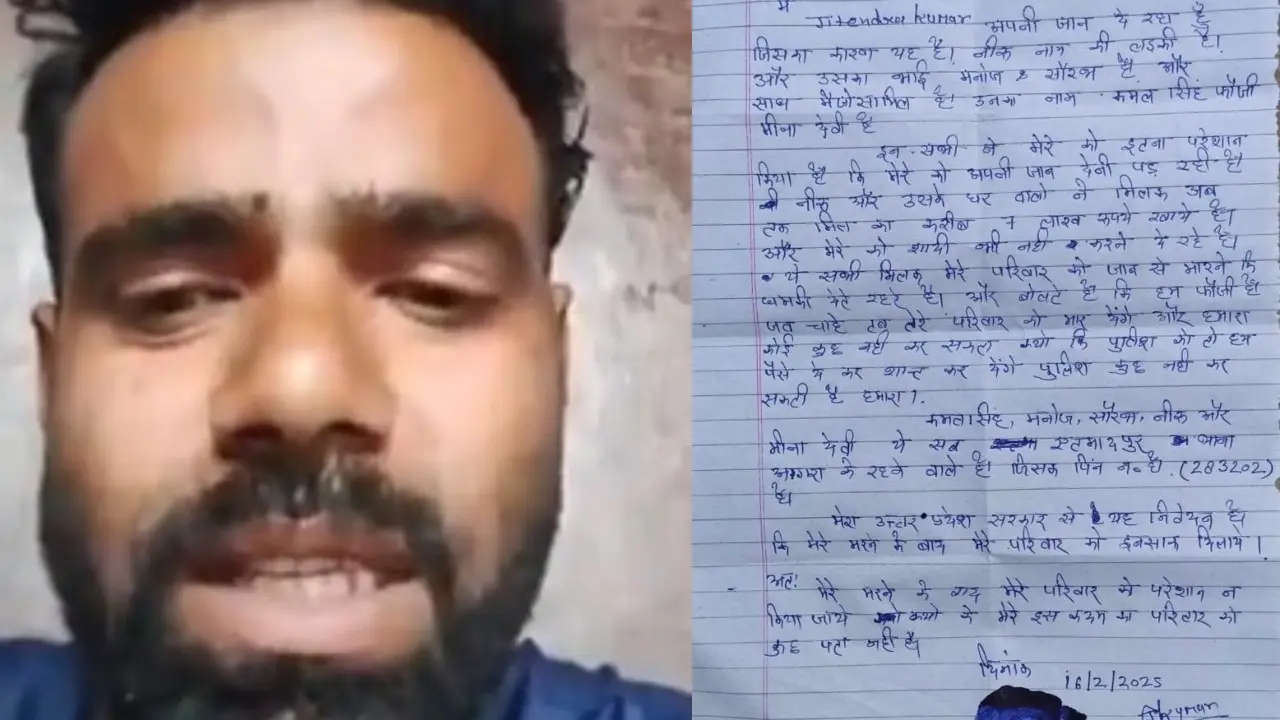 मैं
Jitendra kumar अपनी जान दे रहा हूँ
जिसका कारण यह है। नीरू नाम की लड़की है।
और उसका भाई मनोज & सौरभ है और
साथ मे सामिल है। उनका नाम कमल सिंह फौजी
मीना देवी है
इन सभी ने मेरे को इतना परेशान
किया है कि मेरे को अपनी जान देनी पड़ रही है
नीरू और उसके घर वालो ने मिलक अब
तक मिल का करीब 7 लाख रुपये खाये है।
और मेरे को शादी भी नही करने दे रहे है।
ये सभी मिलक मेरे परिवार को जान से मारने कि
धमकी देते रहते है। और बोलते है कि हम फौजी है
जब चाहे तब तेरे परिवार को मार देंगे और हमारा
कोई कुछ नही कर सकता क्यो कि पुलिश को तो हम
पैसे दे कर शान्त कर देंगे पुलिश कुछ नही कर
सकती है हमारा।
कमल सिंह, मनोज, सौरभ, नीरू और
मीना देवी ये सब एतमादपुर थाना
आगरा के रहने वाले है। जिसका पिन न० है. (283202)
है।
मेरा उत्तर प्रदेश सरकार से यह निवेदन है।
कि मेरे मरने के बाद मेरे परिवार को इनसाफ दिलाये।
अतः
मेरे मरने के बाद मेरे परिवार को परेशान न
किया जाये क्यो के मेरे इस कदम का परिवार को
कुछ पता नही है।
दिनांक
16/2/2025